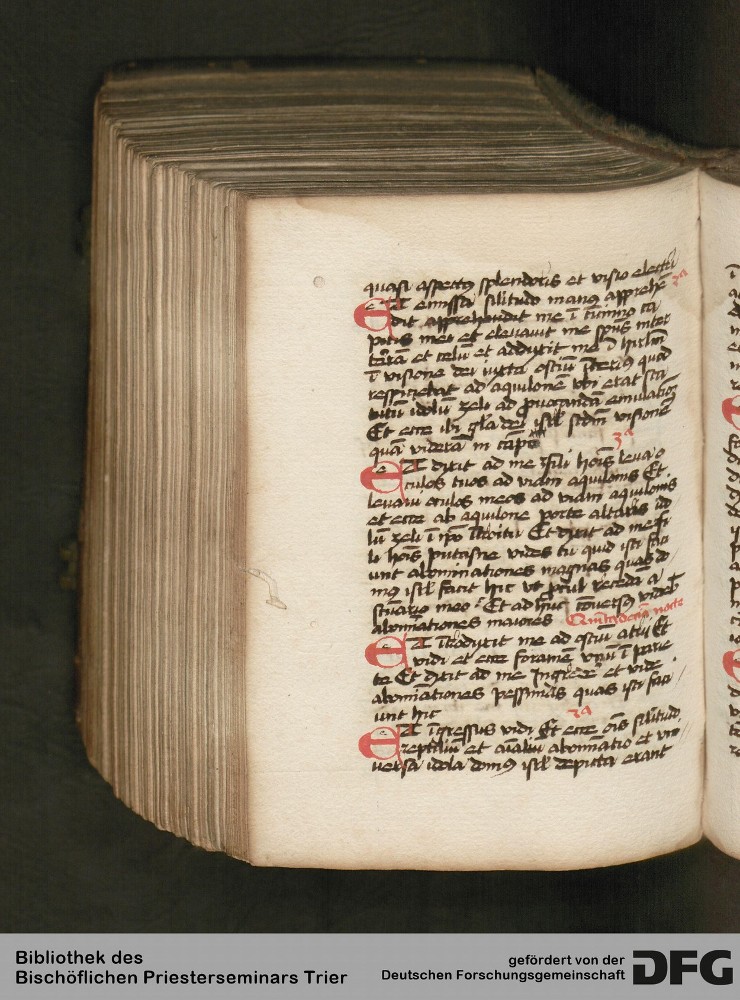 quasi aspectꝯ splendoris et visio electri
Et emissa silitudo manꝯ apprehē 2a
dit apprehendit me ī cincino ca
pitis mei et eleuauit me spūs inter
terrā et celū et adduxit me ī hirlm̄
ī visione dei iuxta ostiū īteriꝯ quod
respiciebat ad aquilonē vbi erat sta
tutū idolū zeli ad ꝓuocandā emulationē
Et ecce ibi gl̄a dei isrl̄ scdm̄ visionē
quā viderā in cāpo 3a
Et dixit ad me fili hoīs leua o
culos tuos ad viam aquilonis Et
leuaui oculos meos ad viam aquilonis
et ecce ab aquilone porte altaris ido
lū zeli ī ip̄o ītroitu Et dixit ad me fi
li hoīs putasne vides tu quid isti faci
unt abominationes magnas quas do
mꝯ isrl̄ facit hic vt ꝓcul recedā a
sc̄uario meo Et adhuc cōuersꝯ videb
abomīationes maiores
Et ītroduxit me ad ostiū atrij Et
vidi et ecce foramē vnū ī parie
te Et dixit ad me Ingredere et vide
abomīationes pessimas quas isti faci
unt hic 2a
Et īgressus vidi Et ecce oīs silitudo
reptiliū et aīaliū abomīatio et vni
uersa idola domꝯ isrl̄ depicta erant
Bibliothek des
Bischöflichen Priesterseminars Trier
gefördert von der
Deutschen Forschungsgemeinschaft
DFG